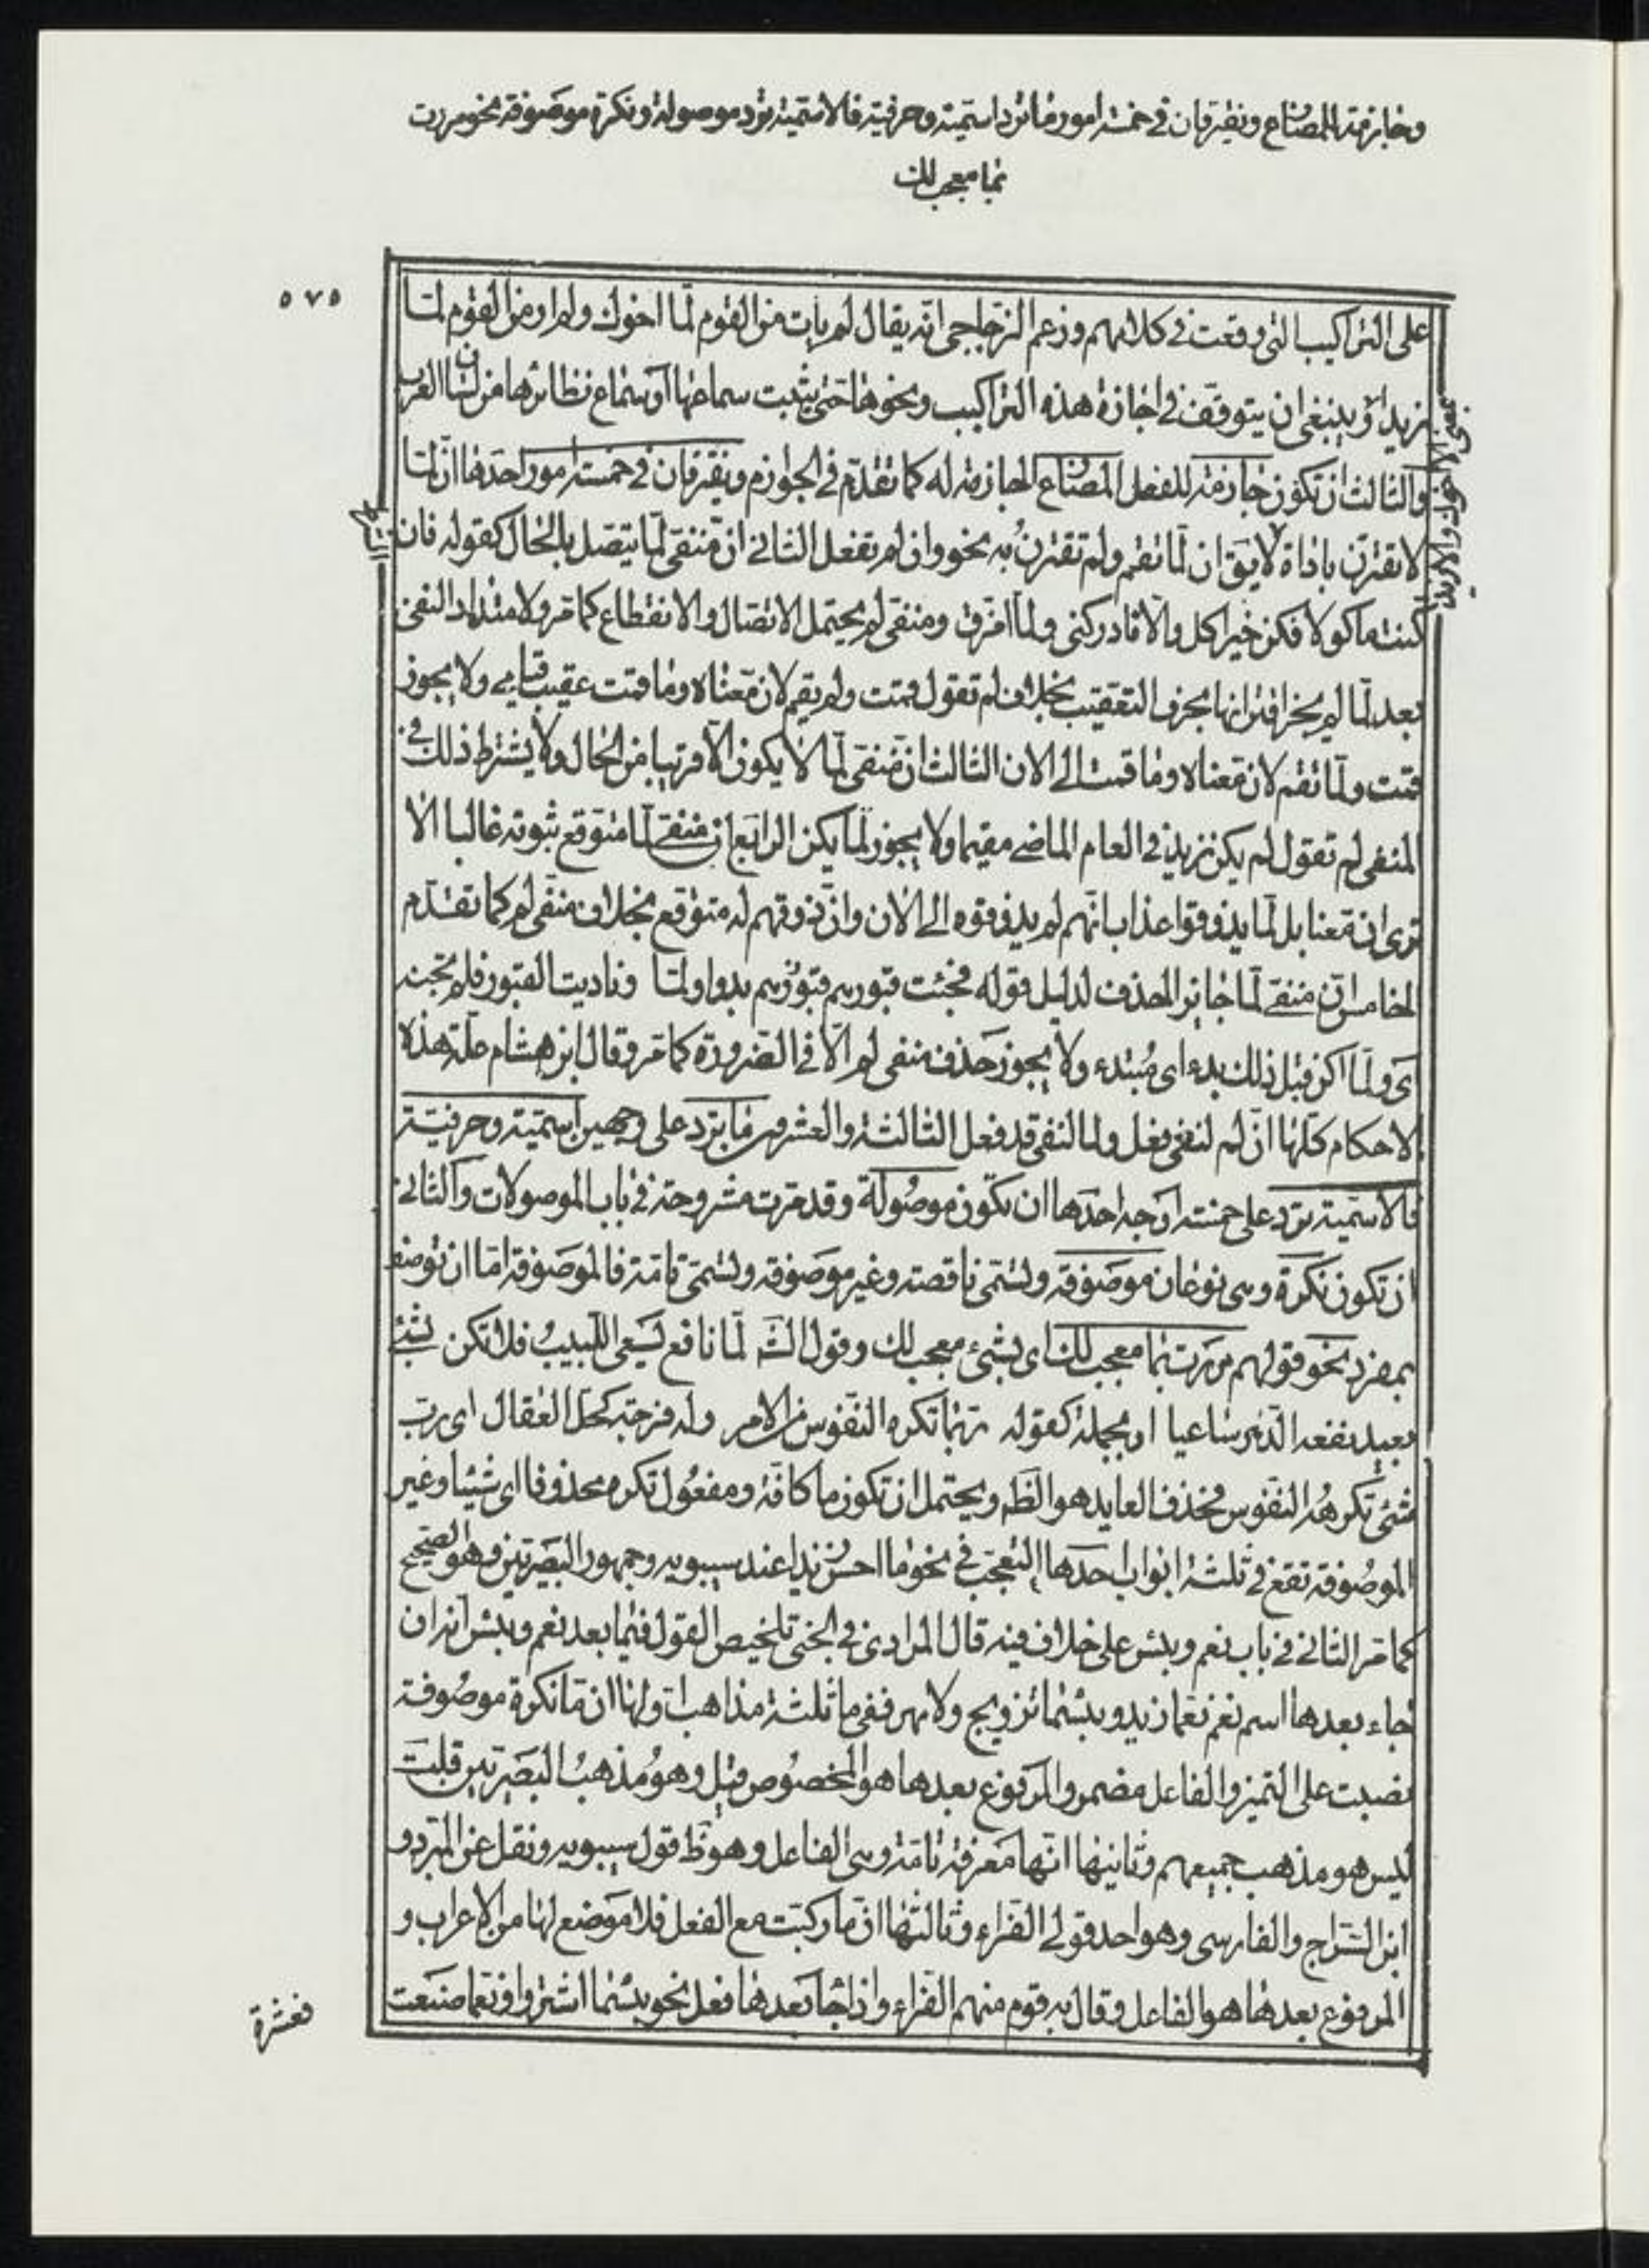 وجازمة للمضارع ويفترقان في خمسة امور ما ترد اسمية وحرفية فالاسمية ترد موصولة ونكرة موصوفة نحو مررت
بما معجب لك
٥٧٥
على التراكيب التي وقعت في كلامهم وزعم الزجاجي انه يقال لم يات من القوم لما اخوك ولم ار من القوم لما
زيدا وينبغي ان يتوقف في اجازة هذه التراكيب ونحوها حتى يثبت سماعها او سماع نظائرها من لسان العرب
والثالث ان تكون جازمة للفعل المضارع الجازمة له كما تقدم في الجوازم ويفترقان في خمسة امور احدها ان لما
لا تقترن باداة لا يق ان لما تقم ولم تقترن به نحو وان لم تفعل الثاني ان منفى لما يتصل بالحال كقوله فان
كنت ماكولا فكن خير اكل والا فادركني ولما امزق ومنفى لم يحتمل الاتصال والانقطاع كما مر ولامتداد النفى
بعد لما لم يجز اقترانها بحرف التعقيب بخلاف لم تقول قمت ولم يقم لان معناه وما قمت عقيب قيامي ولا يجوز
قمت ولما تقم لان معناه وما قمت الى الان الثالث ان منفى لما لا يكون الا قريبا من الحال ولا يشترط ذلك في
المنفى لم تقول لم يكن زيد في العام الماضي مقيما ولا يجوز لما يكن الرابع ان منفى لما متوقع ثبوته غالبا الا
ترى ان معنا بل لما يذوقوا عذاب انهم لم يذوقوه الى الان وان ذوقهم له متوقع بخلاف منفى لم كما تقدم
الخامس ان منفى لما جايز الحذف لدليل قوله فجئت قبورهم بدوا ولما وناديت القبور فلم تجبنه
اى ولما اكن قبل ذلك بدء اى مبتدء ولا يجوز حذف منفى لم الا في الضرورة كما مر وقال ابن هشام علة هذه
الاحكام كلها ان لم لنفى فعل ولما لنفى قد فعل الثالثة والعشرون ما ترد على وجهين اسمية وحرفية
فالاسمية ترد على خمسة اوجه احدها ان تكون موصولة وقد مرت مشروحة في باب الموصولات والثاني
ان تكون نكرة وهى نوعان موصوفة وتسمى ناقصة وغير موصوفة وتسمى تامة فالموصوفة اما ان توصف
بمفرد نحو قولهم مررت بما معجب لك اى بشىء معجب لك وقول الشـ لما نافع يسعى اللبيب فلا تكن لشىء
بعيد نفعه الدهر ساعيا او بجملة كقوله ربما تكره النفوس من الامر وله فرجة كحل العقال اى رب
شىء تكرهه النفوس فحذف العايد هو الظ ويحتمل ان تكون ما كافة ومفعول تكره محذوفا اى شيئا وغير
الموصوفة تقع في ثلثة ابواب احدها التعجب في نحو ما احسن زيدا عند سيبويه وجمهور البصريين وهو الصحيح
كما مر الثاني في باب نعم وبئس على خلاف فيه قال المرادى في الجنى تلخيص القول فيما بعد نعم وبئس انه ان
جاء بعدها اسم نعم نعما زيد وبئسما تزويج ولا مهر ففى ما ثلثة مذاهب اولها ان ما نكرة موصوفة
نصبت على التميز والفاعل مضمر والمرفوع بعدها هو المخصوص قيل وهو مذهب البصريين قلت
ليس هو مذهب جميعهم وثانيها انها معرفة تامة وهى الفاعل وهو ظ قول سيبويه ونقل عن المبرد و
ابن السراج والفارسى وهو احد قولى الفراء وثالثها ان ما ركبت مع الفعل فلا موضع لها من الاعراب و
المرفوع بعدها هو الفاعل وقال به قوم منهم الفراء واذا جا بعدها فعل نحو بئسما اشتروا ونعما صنعت
فعشرة